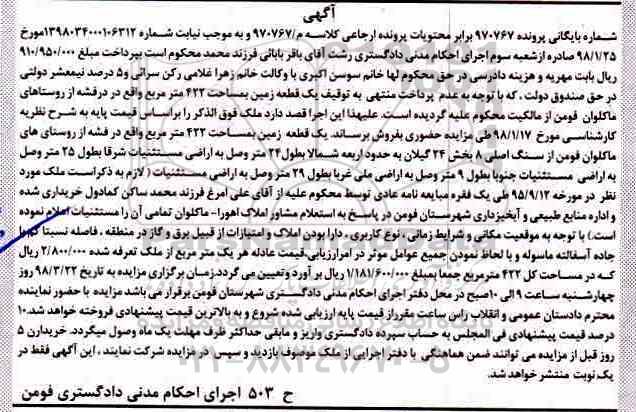 آگهی
شماره بایگانی پرونده ۹۷۰۷۶۷ برابر محتویات پرونده ارجاعی کلاسه م/۹۷۰۷۶۷ و به موجب نیابت شماره ۱۳۹۸۰۳۴۰۰۰۱۰۶۳۱۲مورخ
۹۸/۱/۲۵ صادره ازشعبه سوم اجرای احکام مدنی دادگستری رشت. آقای باقر بابائی فرزند محمد محکوم است بپرداخت مبلغ ۹۱۰/۹۵۰/۰۰۰
ریال بابت مهریه و هزینه دادرسی در حق محکوم لها خانم سوسن اکبری با وکالت خانم زهرا غلامی رکن سرائی و۵ درصد نیمعشر دولتی
در حق صندوق دولت ، که با توجه به عدم پرداخت منتهی به توقیف یک قطعه زمین بمساحت ۴۲۲ متر مربع واقع در درفشه از روستاهای
ماکلوان فومن از مالکیت محکوم علیه گردیده است. علیهذا این اجرا قصد دارد ملک فوق الذکر را براساس قیمت پایه به شرح نظریه
کارشناسی مورخ ۹۸/۱/۱۷ طی مزایده حضوری بفروش برساند. یک قطعه زمین بمساحت ۴۲۲ متر مربع واقع در فشه از روستای های
ماکلوان فومن از سنگ اصلی ۸ بخش ۲۴ گیلان به حدود اربعه شمالا بطول ۲۴ متر وصل به اراضی مستثنیات شرقا بطول ۲۵ متر وصل
به اراضی مستثنیات جنوبا بطول ۹ متر وصل به اراضی ملی غربا بطول ۲۹ متر وصل به اراضی مستثنیات ( لازم به ذکراست ملک مورد
نظر در مورخه ۹۵/۹/۱۲ طی یک فقره مبایعه نامه عادی توسط محکوم علیه از آقای علی امرغ فرزند محمد ساکن کمادول خریداری شده
و اداره منابع طبیعی و آبخیزداری شهرستان فومن در پاسخ به استعلام مشاور املاک اهورا- ماکلوان تمامی آن را مستثنیات اعلام نموده
است.) با توجه به موقعیت مکانی و شرایط زمانی ، نوع کاربری ، دارا بودن املاک و امتیازات از قبیل برق و گاز در منطقه ، فاصله نسبتا کم با
جاده آسفالته ماسوله و با لحاظ نمودن جمیع عوامل موثر در امرارزیابی،قیمت عادله هر یک متر مربع از ملک تعرفه شده ۲/۸۰۰/۰۰۰ ریال
که در مساحت کل ۴۲۲ مترمربع جمعا بمبلغ ۱/۱۸۱/۶۰۰/۰۰۰ ریال بر آورد وتعیین می گردد.زمان برگزاری مزایده به تاریخ ۹۸/۳/۲۲ روز
چهارشنبه ساعت ۹ الی ۱۰صبح در محل دفتر اجرای احکام مدنی دادگستری شهرستان فومن برقرار می باشد مزایده با حضور نماینده
محترم دادستان عمومی و انقلاب راس ساعت مقرراز قیمت پایه ارزیابی شده شروع و به بالاترین قیمت پیشنهادی فروخته خواهد شد.۱۰
درصد قیمت پیشنهادی فی المجلس به حساب سپرده دادگستری واریز و مابقی حداکثر ظرف مهلت یک ماه وصول میگردد. خریدارن ۵
روز قبل از مزایده می توانند ضمن هماهنگی با دفتر اجرایی از ملک موصوف بازدید و سپس در مزایده شرکت نمایند . این آگهی فقط در
یک نوبت منتشر خواهد شد.
ح ۵۰۳ اجرای احکام مدنی دادگستری فومن
۰۲۱-۸۸۳۴۹۶۷۰-۵